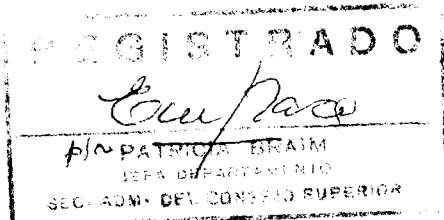 REGISTRADO
p/a PATRICIA BRAIM
JEFA DEPARTAMENTO
SEC. ADM. DEL CONSEJO SUPERIOR